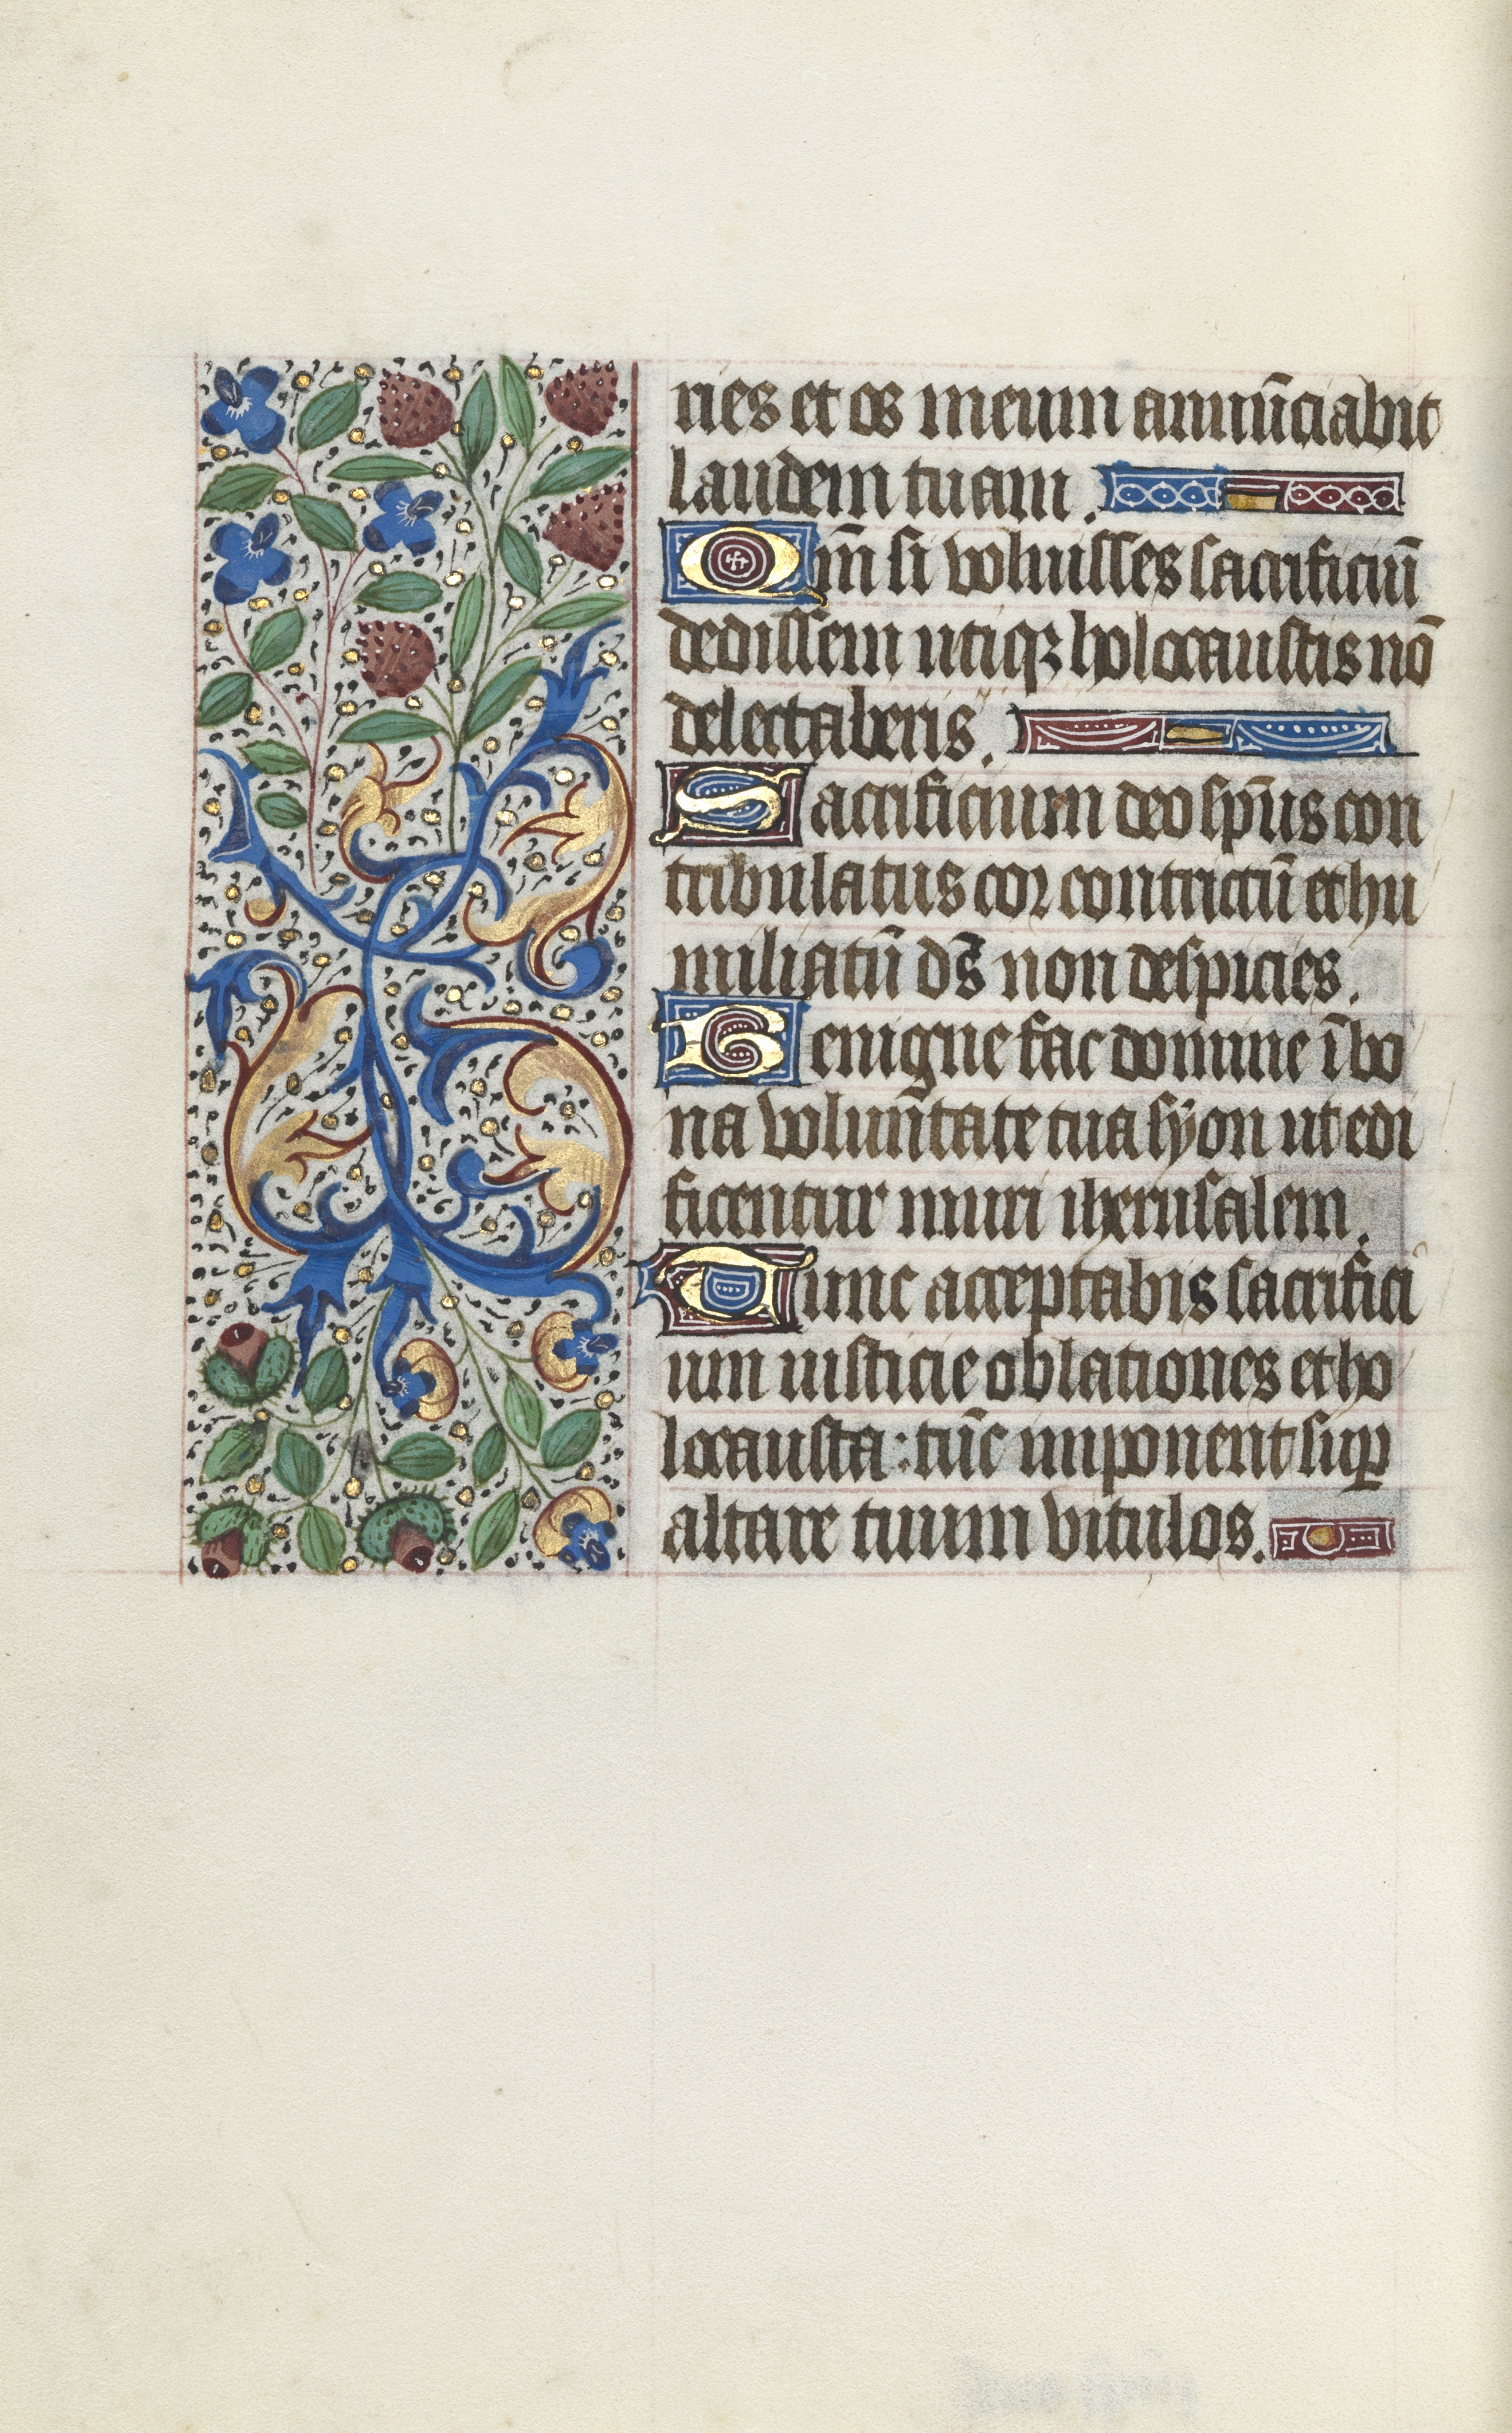 ries et os meum annūciabit
laudem tuam.
Qm̄ si voluisses sacrificiū
dedissem utiqꝫ holocaustis nō
delectaberis.
Sacrificium deo sp̄us con
tribulatus cor contrictū et hu
miliatū ds̄ non despicies.
Benigne fac domine ī bo
na volun̄tate tua syon ut edi
ficentur muri iherusalem.
Tunc acceptabis sacrifici
um iusticie oblationes et ho
locausta: tūc imponent suꝑ
altare tuum vitulos.